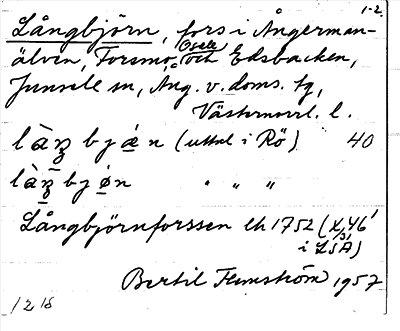 1-2.
Långbjörn, fors i Ångerman-
älven, Forsmo, Osele och Edsbacken,
Junsele sn, Ång. v. doms. tg,
Västernorrl. l.
(uttal i Rö) 40
" " "
Långbjörnforssen lh 1752
i LSA)
Bertil Flemström 1957